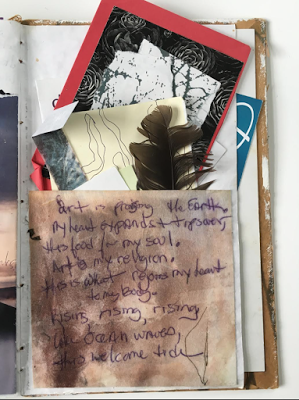 art is the Earth.
My heart expands &
this food for my soul.
Art is my religion.
this is what rejoins my heart
to my body.
rising, rising, rising
like ocean waves,
this welcome tide